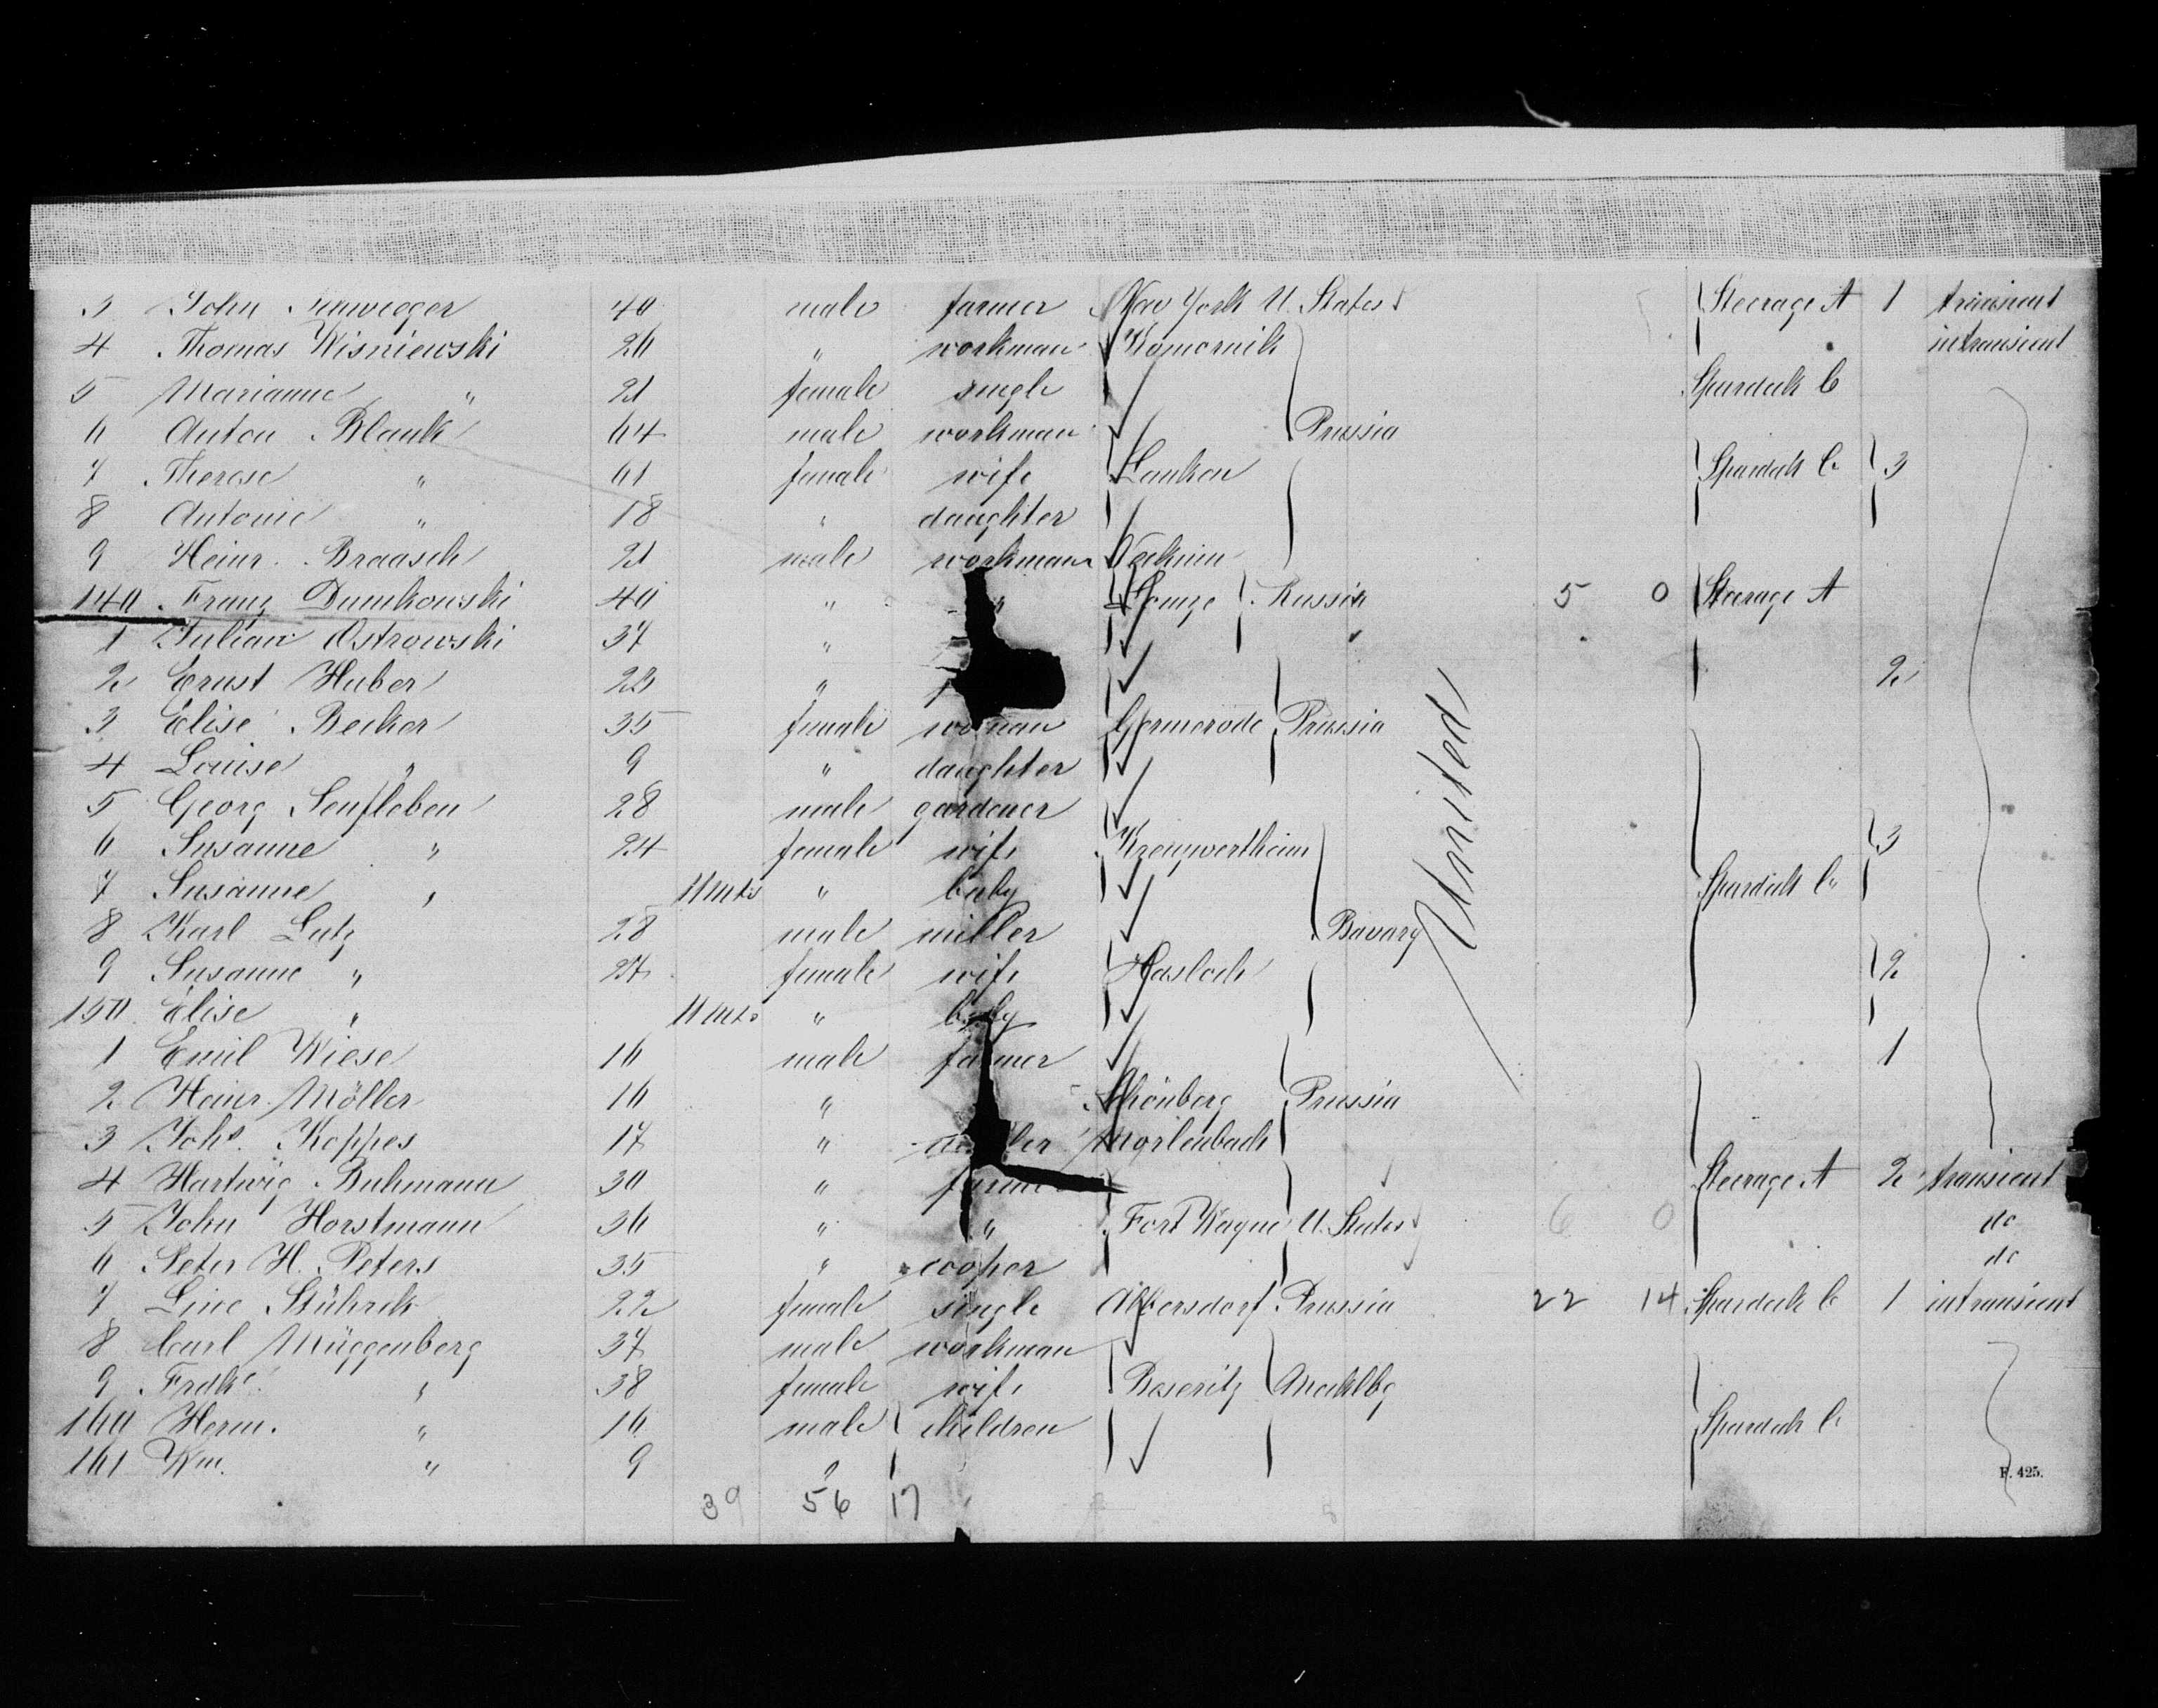 3 John 40 male farmer New York U. States Steerage A 1 transient
4 Thomas Wisniewski 26 " workman Komornik intransient
5 Marianne " 21 female single Spardeck C
6 Anton Blank 64 male workman Prussia
7 Therese " 61 female wife Lanken Spardeck C 3
8 Antonie " 18 " daughter
9 Heinr. Braasch 21 male workman
140 Franz Dumkowski 40 " " Russia 5 0 Steerage A
1 Julian Ostrowski 37 "
2 Ernst Huber 23 " 2
3 Elise Becker 35 female woman Germerode Prussia
4 Louise " 9 " daughter
5 Georg Senfleben 28 male gardener
6 Susanne " 24 female wife Kreuzwertheim 3
7 Susanne " 11 mts " baby Spardeck C
8 Karl Lutz 28 male miller Bavary
9 Susanne " 27 female wife Hasloch 2
150 Elise " 11 mts " baby
1 Emil Wiese 16 male farmer 1
2 Heinr. Möller 16 " Schönberg Prussia
3 Johs. Koppes 17 " Morlenbach
4 Hartwig Buhmann 30 " farmer Steerage A 2 transient
5 John Horstmann 36 " " Fort Wayne U. States 6 0 do
6 Peter H. Peters 35 " cooper do
7 Line Stührck 22 female single Albersdorf Prussia 22 14 Spardeck C 1 intransient
8 Carl Müggenberg 37 male workman
9 Fredke. " 38 female wife Beseritz Mecklbg
160 Herm. " 16 male children Spardeck C
161 Wm. " 9 "
United
F. 425.
39 56 17